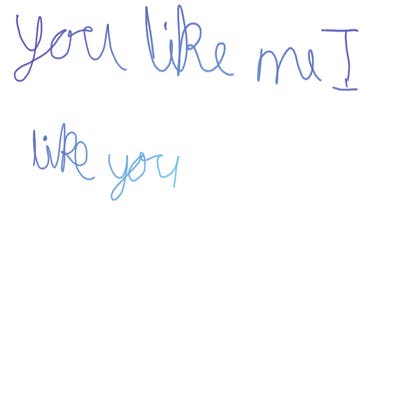 you like me I
like you